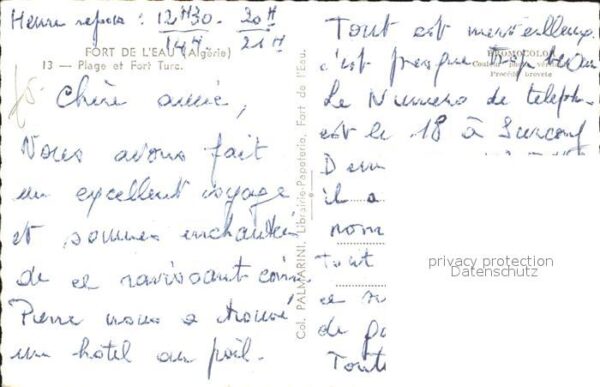 Heure repas : 12H30 - 20H
14H. 21H
FORT DE L'EAU (Algérie)
13 — Plage et Fort Turc.
Chère amie,
Nous avons fait
un excellent voyage
et sommes enchantés
de ce ravissant coin
Pierre nous a trouvé
un hôtel au poil.
Col. PALMARINI, Librairie-Papeterie, Fort de l'Eau.
Tout est merveilleux
c'est presque trop beau
PROMOCOLOR
Procédé breveté
Le Numero de teleph
est le 18 à Surcouf
il a
nom
Tout
ce
de
Toute
privacy protection
Datenschutz